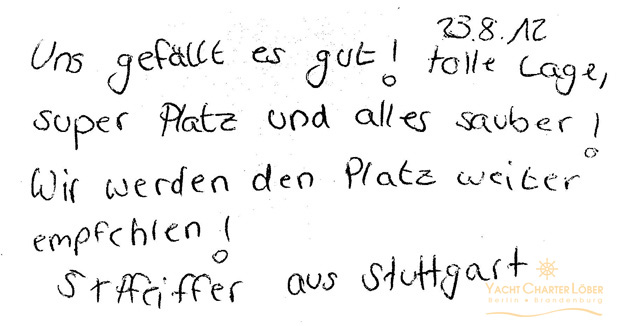 23.8.12
Uns gefällt es gut! tolle Lage,
super Platz und alles sauber!
Wir werden den Platz weiter
empfehlen!
aus Stuttgart
YACHT CHARTER LÖBER
Berlin • Brandenburg